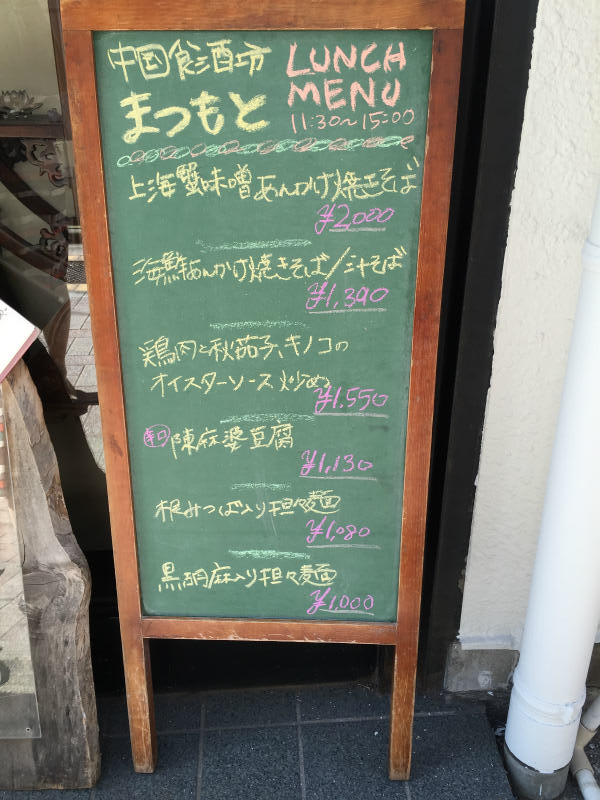 中国食酒坊
まつもと
LUNCH
MENU
11:30~15:00
上海蟹味噌あんかけ焼きそば
¥2,000
海鮮あんかけ焼きそば/汁そば
¥1,390
鶏肉と秋茄子、キノコの
オイスターソース炒め
¥1,550
辛口 陳麻婆豆腐
¥1,130
根みつば入り担々麺
¥1,080
黒胡麻入り担々麺
¥1,000